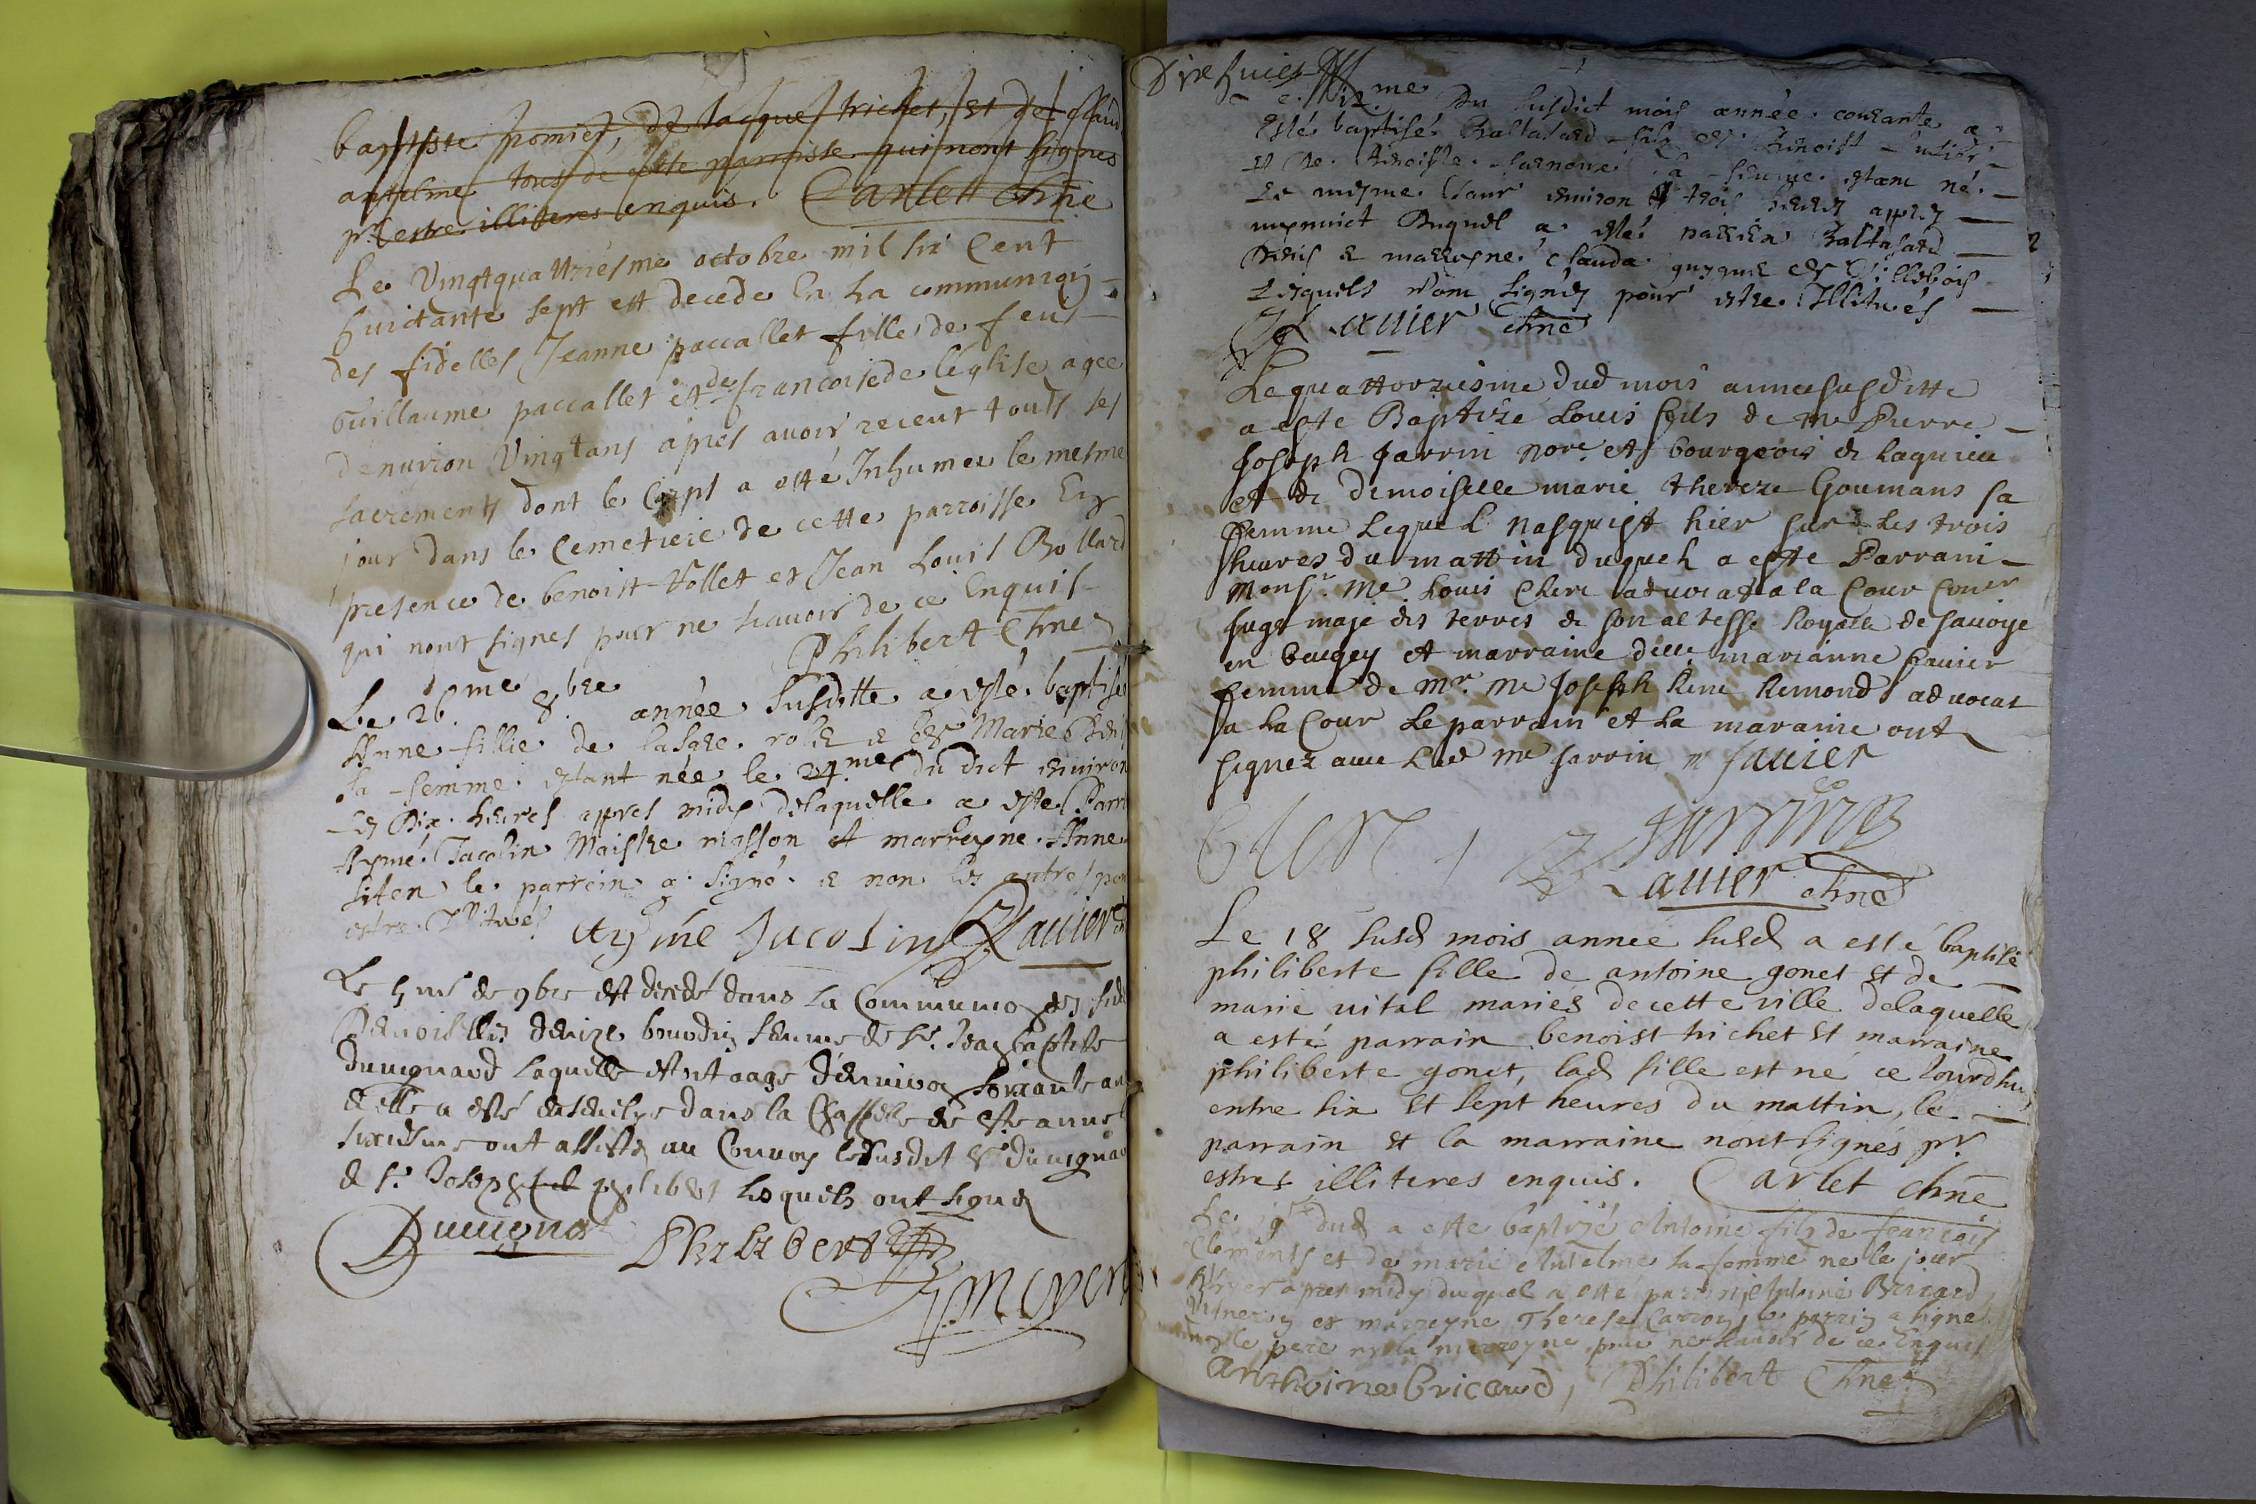 baptiste pomier, de Jacques trichet, et de Claud
antelme tous de cette parroisse qui nont signes
pr. estre illiteres enquis. Carlett chne
Le Vingtquattriesme octobre mil six Cent
huictante sept est decede En La communion
des fidelles Jeanne paccallet fille de feus
Guillaume paccallet et de francoise de Leglise agee
denuiron Vingt ans apres avoir receut touts ses
sacrements dont le Corps a esté Inhumee le mesme
jour dans le Cemetiere de cette parroisse En
presence de benoist Vollet et Jean Louis Bollard
qui nont signes pour ne scavoir de ce Enquis
Philibert Chne
Le 26.me 8.bre année susditte a esté baptise
Anne fillie de Marie
sa femme estant née le 24.me du dict enuiron
les Dix heures appres midy delaquelle a este Parr
Aymé Jacolin Maistre masson et marreyne Anne
le parrein a signé e non les autres pour
estre Illitrés
Aymé Jacolin Lauier
Le 5me de 9bre est decedé dans La Communion des fid
Demoiselle femme de Sr. Jean baptiste
Duuignard Laquelle estoit aage d'enuiron soixante an
& elle a esté enseuelye dans la Chappelle de Ste anne
sixiesme ont assisté au Conuoy le susdit Sr Duuignar
& Sr Joseph philibert lesquels ont signé
Duuignar Philibert
Dix huict
12.me Du susdict mois année courante a
esté baptisé Baltasard fils de Benoist
et de sa femme estant né
Le mesme jour enuiron trois heures appres
mynuict Duquel a esté parrein Baltasard
e marreyne Clauda de Villebois
Lesquels n'ont signés pour estre Illitrés
Lauier chne
Le quattorziesme dud mois annee susditte
a este Baptize Louis fils de Me Pierre
Joseph Jarrin nore. et bourgeois de Lagnieu
et de Demoiselle marie thereze Goumans sa
femme Lequel nasquist hier sur Les trois
heures du mattin duquel a este Parrain
Monsr. Me Louis Clerc aduocat a la Cour
Juge maje des terres de son altesse Royalle de sauoye
en beugey et marraine dlle marianne
femme de Mr. Me Joseph Rene Remond aduocat
a La Cour Le parrain et La maraine ont
signez auec Led me Jarrin m fauier
Clerc Jarrin
Lauier chne
Le 18 susd mois année susd a esté baptisé
philiberte fille de antoine gonet et de
marie vital mariés de cette ville delaquelle
a esté parrain benoist trichet et marraine
philiberte gonet, lad fille est né ce Jourdhuy
entre six et sept heures du mattin, le
parrain et la marraine nont signés pr.
estres illiteres enquis. Carlet chne
Le dud a este baptizé Antoine fils de francois
Clements et de marie Antelme sa femme ne le jour
d'hyer apres midy duquel a este parrin Antoine Bricard
Vigneron et marreyne Therese le parrin a signé
le pere ny la marreyne pour ne scauoir de ce Enquis
Anthoine bricard, Philibert Chne